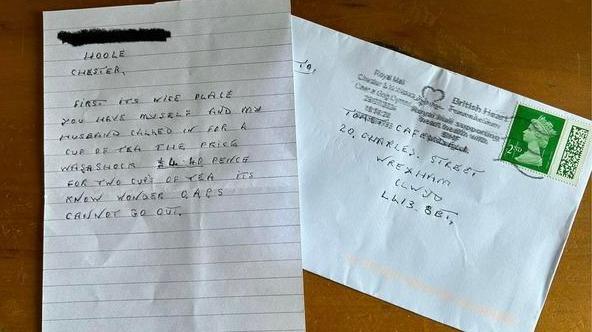 HOOLE
CHESTER,
FIRST ITS NICE PLACE
YOU HAVE MYSELF AND MY
HUSBAND CALLED IN FOR A
CUP OF TEA THE PRICE
WAS A SHOCK £4.40 PENCE
FOR TWO CUPS OF TEA ITS
KNOW WONDER O.A.P.S
CANNOT GO OUT.
TO,
Royal Mail
British Heart
CAFE
20, CHARLES STREET
WREXHAM
CLWYD
LL13. 8BT,
2ND